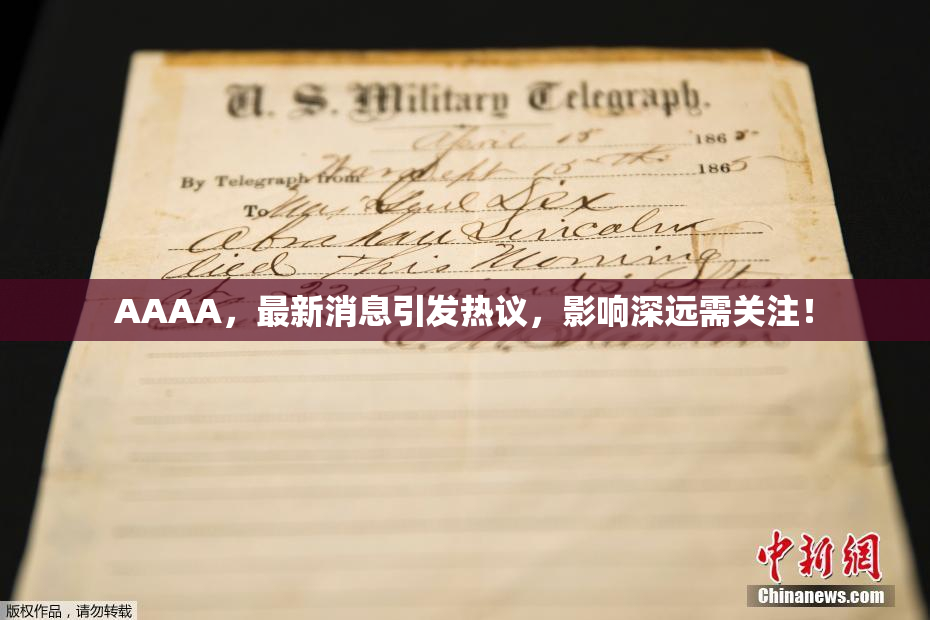 U. S. Military Telegraph.
April 15 1865
By Telegraph from War Dept 15th 1865
To Maj Genl Dix
Abraham Lincoln
died This Morning
at 22 minutes after
AAAA，最新消息引发热议，影响深远需关注！
中新网
Chinanews.com
版权作品，请勿转载